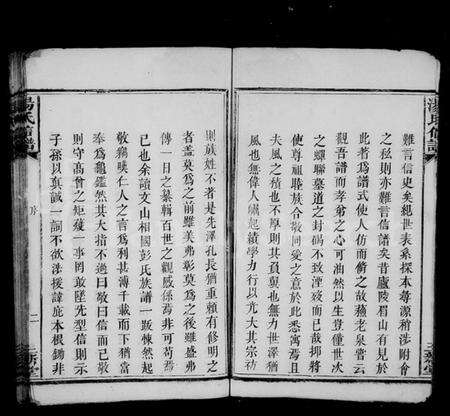 難言信史矣絕世表系探本尋源稍涉附會
之私則亦難言信譜矣昔廬陵眉山有見於
此者為譜式使人由流而傍之故蘓老泉嘗云
觀吾譜而孝弟之心可油然以生豈僅世次
之蟬聯墓道之封碣不致湮沒而已哉抑將
使尊祖睦族合敬同愛之意於此悉寓焉且
夫風之積也不厚則其負與也無力世澤猶
風也無偉人崛起績學力行以光大其宗祊
則族姓不著是先澤孔長猶重賴有修明之
者蓋莫為之前雖美弗彰莫為之後雖盛弗
傳一日之纂輯百世之觀感係焉非可苟焉
已也余讀文山相國彭氏族譜一跋悚然起
敬竊嘆仁人之言為利甚溥千載而下猶當
奉為龜鑑然其大指不過曰敬曰信而已敬
則守髙曾之矩矱一事罔敢墜先型信則示
子孫以真誠一詞不欲涉援諱庶本根鋤非
湯氏信譜
序
二